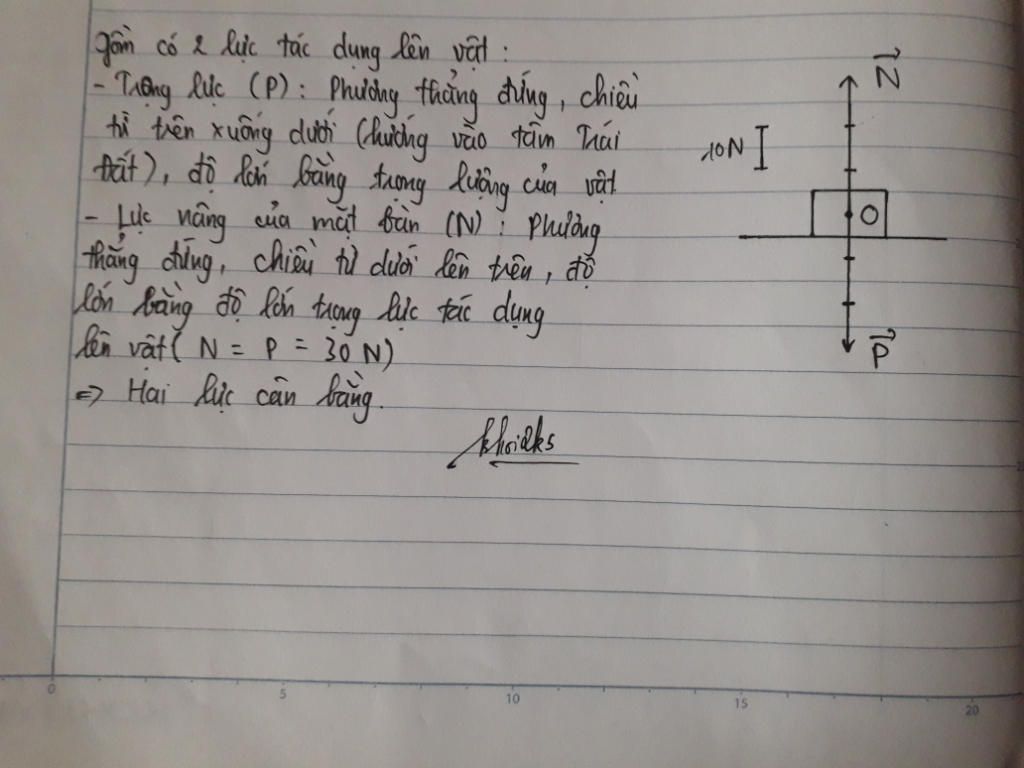 gồm có 2 lực tác dụng lên vật:
- Trọng lực (P): Phương thẳng đứng, chiều
từ trên xuống dưới (hướng vào tâm Trái
Đất), độ lớn bằng trọng lượng của vật
- Lực nâng của mặt bàn (N): Phương
thẳng đứng, chiều từ dưới lên trên, độ
lớn bằng độ lớn trọng lực tác dụng
lên vật (N = P = 30 N)
=> Hai lực cân bằng.
khoi2ks
N
10N
O
P
0 5 10 15 20